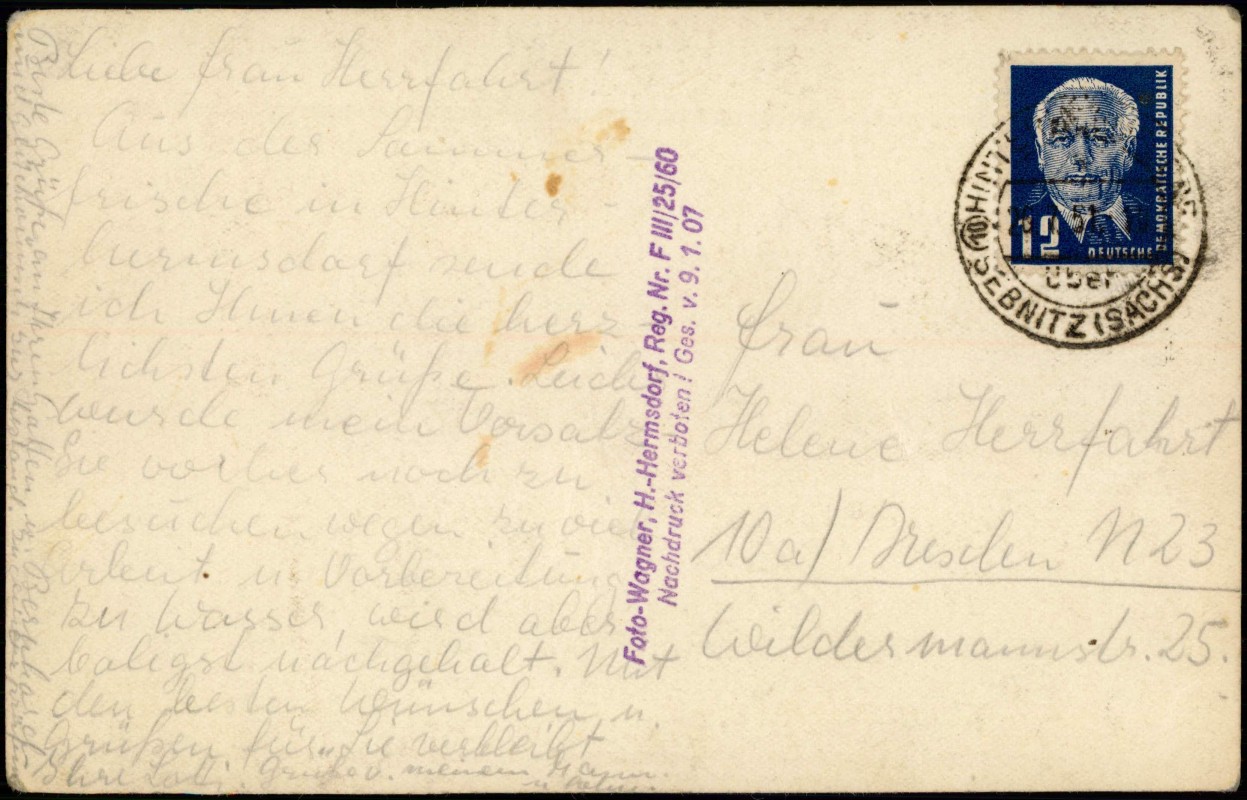 Liebe Frau Herrfahrt!
Aus der Sommer-
frische in Hinter-
hermsdorf sende
ich Ihnen die herz-
lichsten Grüße. Leider
wurde mein Vorsatz
Sie vorher noch zu
besuchen wegen zu viel
Arbeit u. Vorbereitung
zu Wasser, wird aber
baldigst nachgeholt. Mit
den besten Wünschen u.
Grüßen für Sie verbleibt
Ihre Grüße v. meinem Mann
Beste Grüße an Ihren Gatten u.
und
Foto-Wagner, H.-Hermsdorf, Reg. Nr. F III/25/60
Nachdruck verboten! Ges. v. 9. 1. 07
12
DEUTSCHE DEMOKRATISCHE REPUBLIK
(10) HINT
51
über
SEBNITZ (SACHS)
Frau
Helene Herrfahrt
10a) Dresden N 23
Wildermannstr. 25.